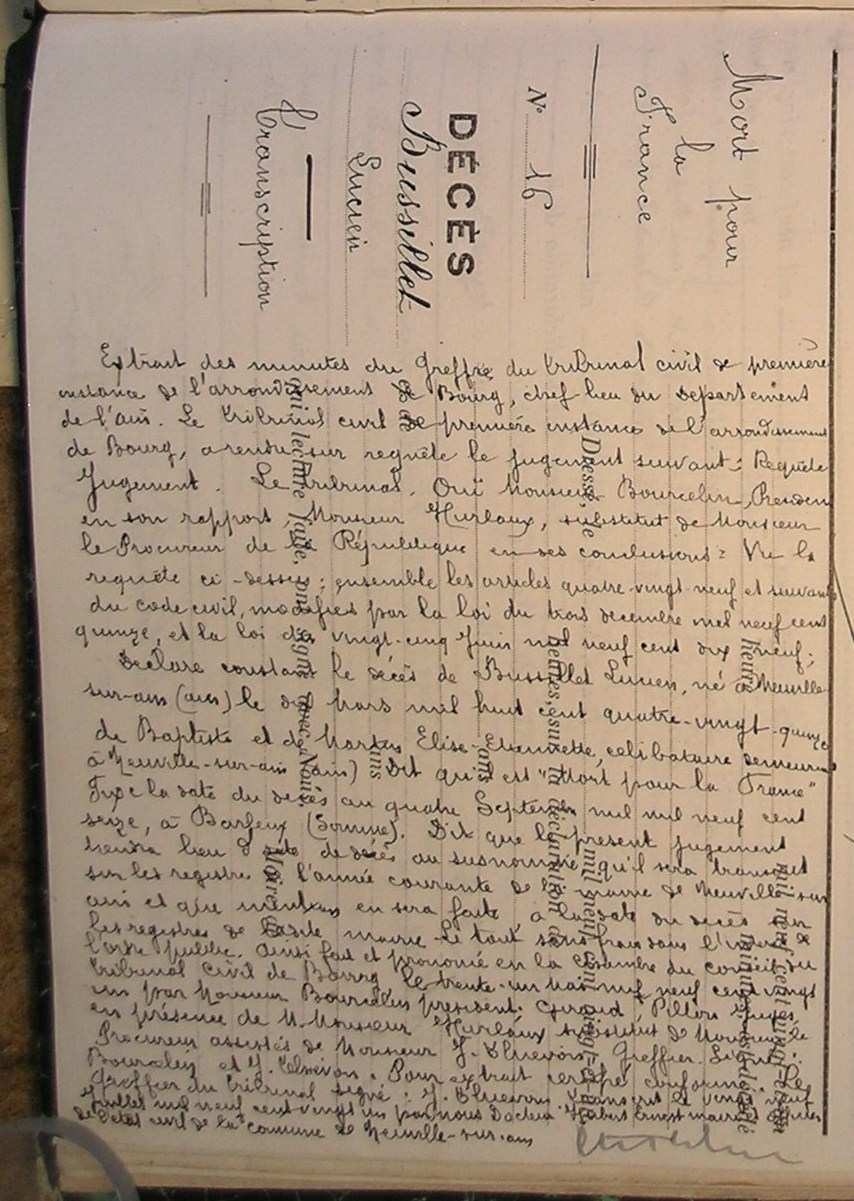 Mort pour
la
France
N° 16
DÉCÈS
Bussillet
Lucien
Transcription
Extrait des minutes du Greffe du tribunal civil de première
instance de l'arrondissement de Bourg, chef lieu du Département
de l'ain. Le tribunal civil de première instance de l'arrondissement
de Bourg, a rendu sur requête le jugement suivant: Requête
Jugement. Le tribunal. Ouï Monsieur Bourcelin, Président
en son rapport, Monsieur Hurlaux, substitut de Monsieur
le Procureur de la République en ses conclusions: Vu la
requête ci-dessus; ensemble les articles quatre-vingt-neuf et suivants
du code civil, modifiés par la loi du trois décembre mil neuf cent
quinze, et la loi du vingt-cinq juin mil neuf cent dix neuf;
Déclare constant le décès de Bussillet Lucien, né à Neuville
sur-ain (ain) le dix Mars mil huit cent quatre-vingt-quinze
de Baptiste et de Elise-Etiennette, célibataire demeurant
à Neuville-sur-ain (ain) Dit qu'il est "Mort pour la France"
Fixe la date du décès au quatre Septembre mil mil neuf cent
seize, à Barleux (Somme). Dit que le présent jugement
tiendra lieu d'acte de décès au susnommé qu'il sera transcrit
sur les registres de l'année courante de la mairie de Neuville sur
ain et que mention en sera faite, à la date du décès sur
les registres de ladite mairie le tout sans frais dans l'intérêt de
l'ordre public. Ainsi fait et prononcé en la chambre du conseil du
tribunal Civil de Bourg le trente-un Mai mil neuf cent vingt
un par Monsieur Bourcelin président. Giraud, Pillon Juges,
en présence de M. Monsieur Hurlaux substitut de Monsieur le
Procureur assistés de Monsieur J. Greffier. Signé:
Bourcelin et J. Pour extrait certifié conforme. Le
Greffier du tribunal signé: J. Transcrit le vingt neuf
Juillet mil neuf cent vingt un par nous Docteur Hubert Ernest maire officier
de l'état civil de la commune de Neuville-sur-ain